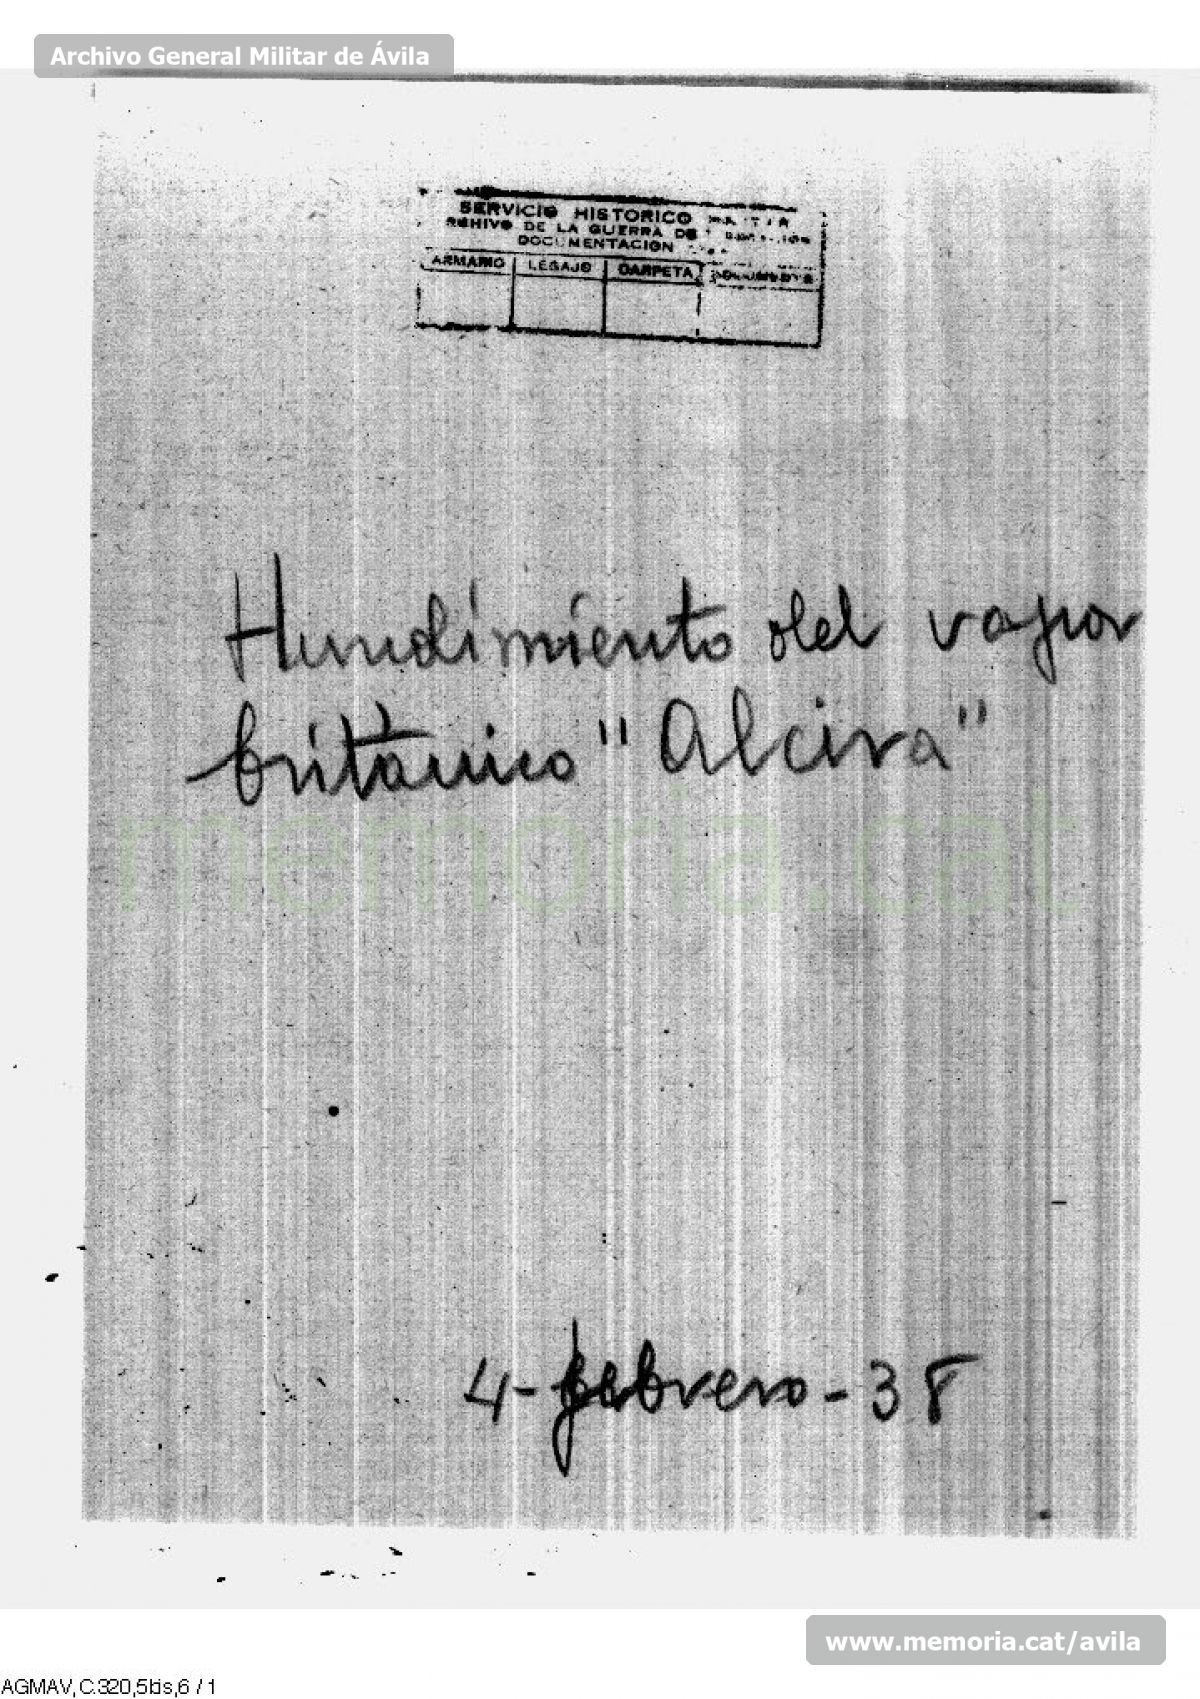 Archivo General Militar de Ávila
SERVICIO HISTORICO
ARCHIVO DE LA GUERRA DE
DOCUMENTACION
ARMARIO LEGAJO CARPETA
Hundimiento del vapor
británico "Alcira"
memoria.cat
4-febrero-38
www.memoria.cat/avila
AGMAV,C.320,5bis,6 / 1